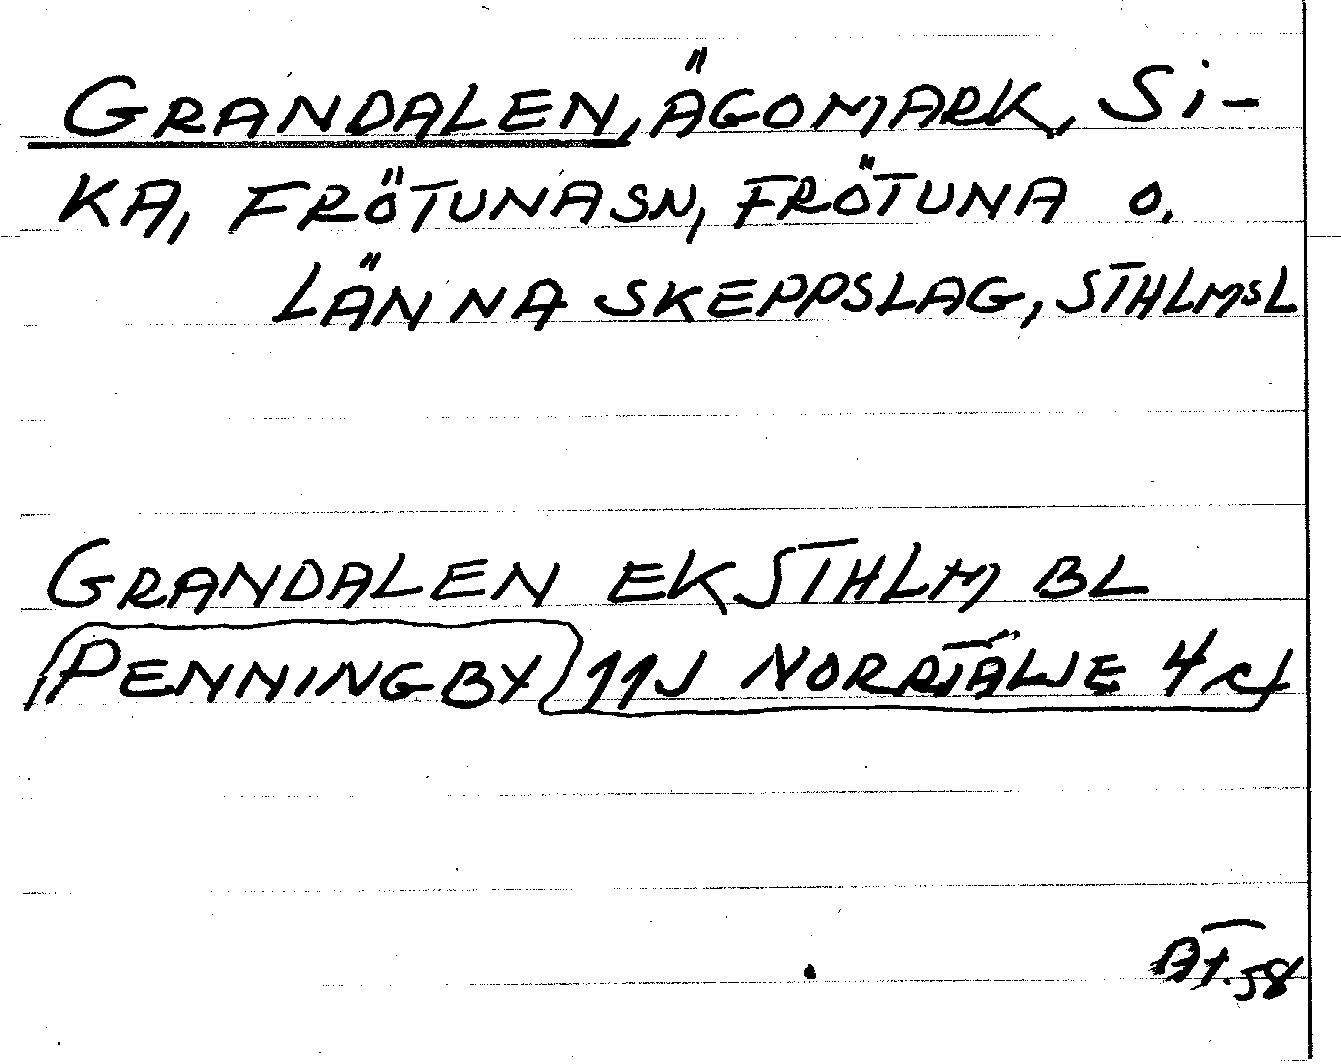 GRANDALEN, ÄGOMARK, Si-
KA, FRÖTUNA SN, FRÖTUNA O.
LÄNNA SKEPPSLAG, STHLMSL
GRANDALEN EK STHLM BL
(PENNINGBY) 11J NORRTÄLJE 4
AT.58